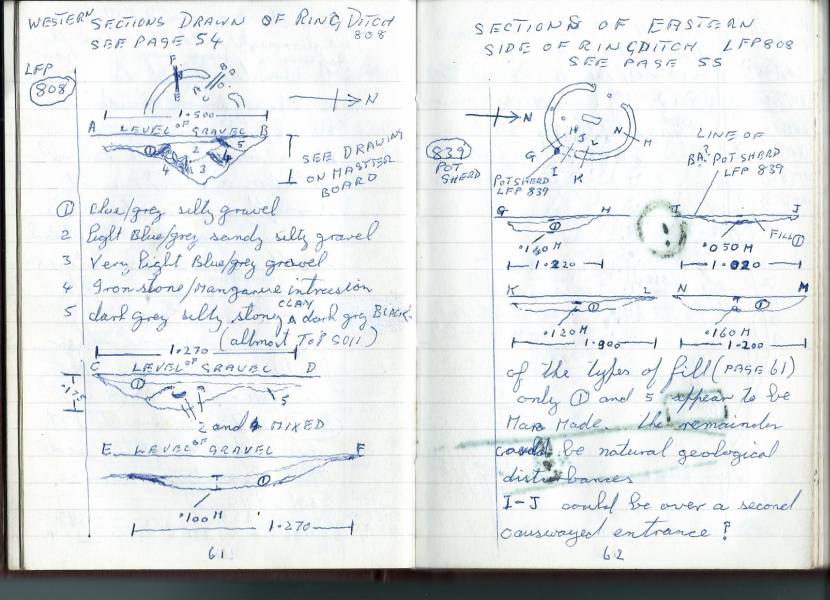 WESTERN SECTIONS DRAWN OF RING DITCH 808
SEE PAGE 54
LFP
808
F
E
B
D
A
C
N
1.500
A LEVEL OF GRAVEL B
1
2
5
4
3
4
SEE DRAWING
ON MASTER
BOARD
① blue/grey silty gravel
2 light Blue/grey sandy silty gravel
3 Very light Blue/grey gravel
4 Ironstone/Manganese intrusion
5 dark grey silty stoney CLAY dark grey BLACK.
(allmost TOP SOIL)
1.270
C LEVEL OF GRAVEL D
①
.175
5
2 and 4 MIXED
E LEVEL OF GRAVEL F
①
.100 M
1.270
61
SECTIONS OF EASTERN
SIDE OF RINGDITCH LFP808
SEE PAGE 55
N
839
POT
SHERD
H
J
L
N
M
G
I
K
POTSHERD
LFP 839
LINE OF
BA? POT SHERD
LFP 839
G H
①
.140 M
1.220
I J
FILL ①
.050 M
1.020
K L
①
.120 M
1.900
N M
①
.160 M
1.200
of the types of fill (PAGE 61)
only ① and 5 appear to be
Man Made. The remainder
could be natural geological
disturbances
I-J could be over a second
causwayed entrance?
62